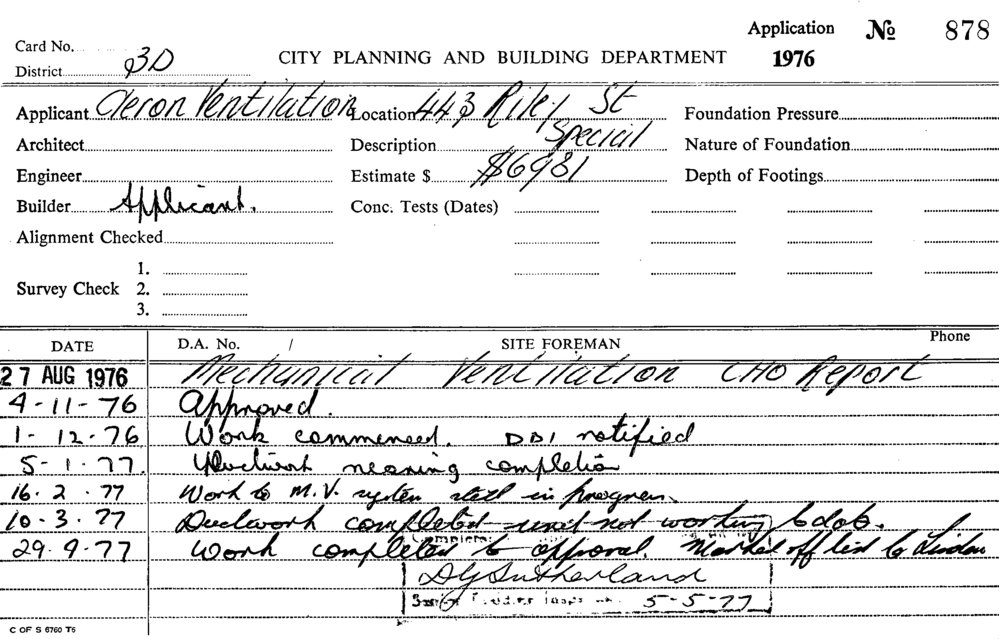 Application № 878
Card No.
District 3D CITY PLANNING AND BUILDING DEPARTMENT 1976
Applicant Aeron Ventilation Location 443 Riley St Foundation Pressure
Architect Description Special Nature of Foundation
Engineer Estimate $ $6981 Depth of Footings
Builder Applicant. Conc. Tests (Dates)
Alignment Checked
1.
Survey Check 2.
3.
DATE D.A. No. / SITE FOREMAN Phone
27 AUG 1976 Mechanical Ventilation CHO Report
4-11-76 Approved.
1-12-76 Work commenced. DBI notified
5-1-77. Ductwork nearing completion
16.2.77 Work to M.V. system still in progress.
10-3.77 Ductwork completed unit not working to date.
29.9.77 Work completed to approval. Marked off list
DJ Sutherland
5-5-77
C OF S 6760 T6